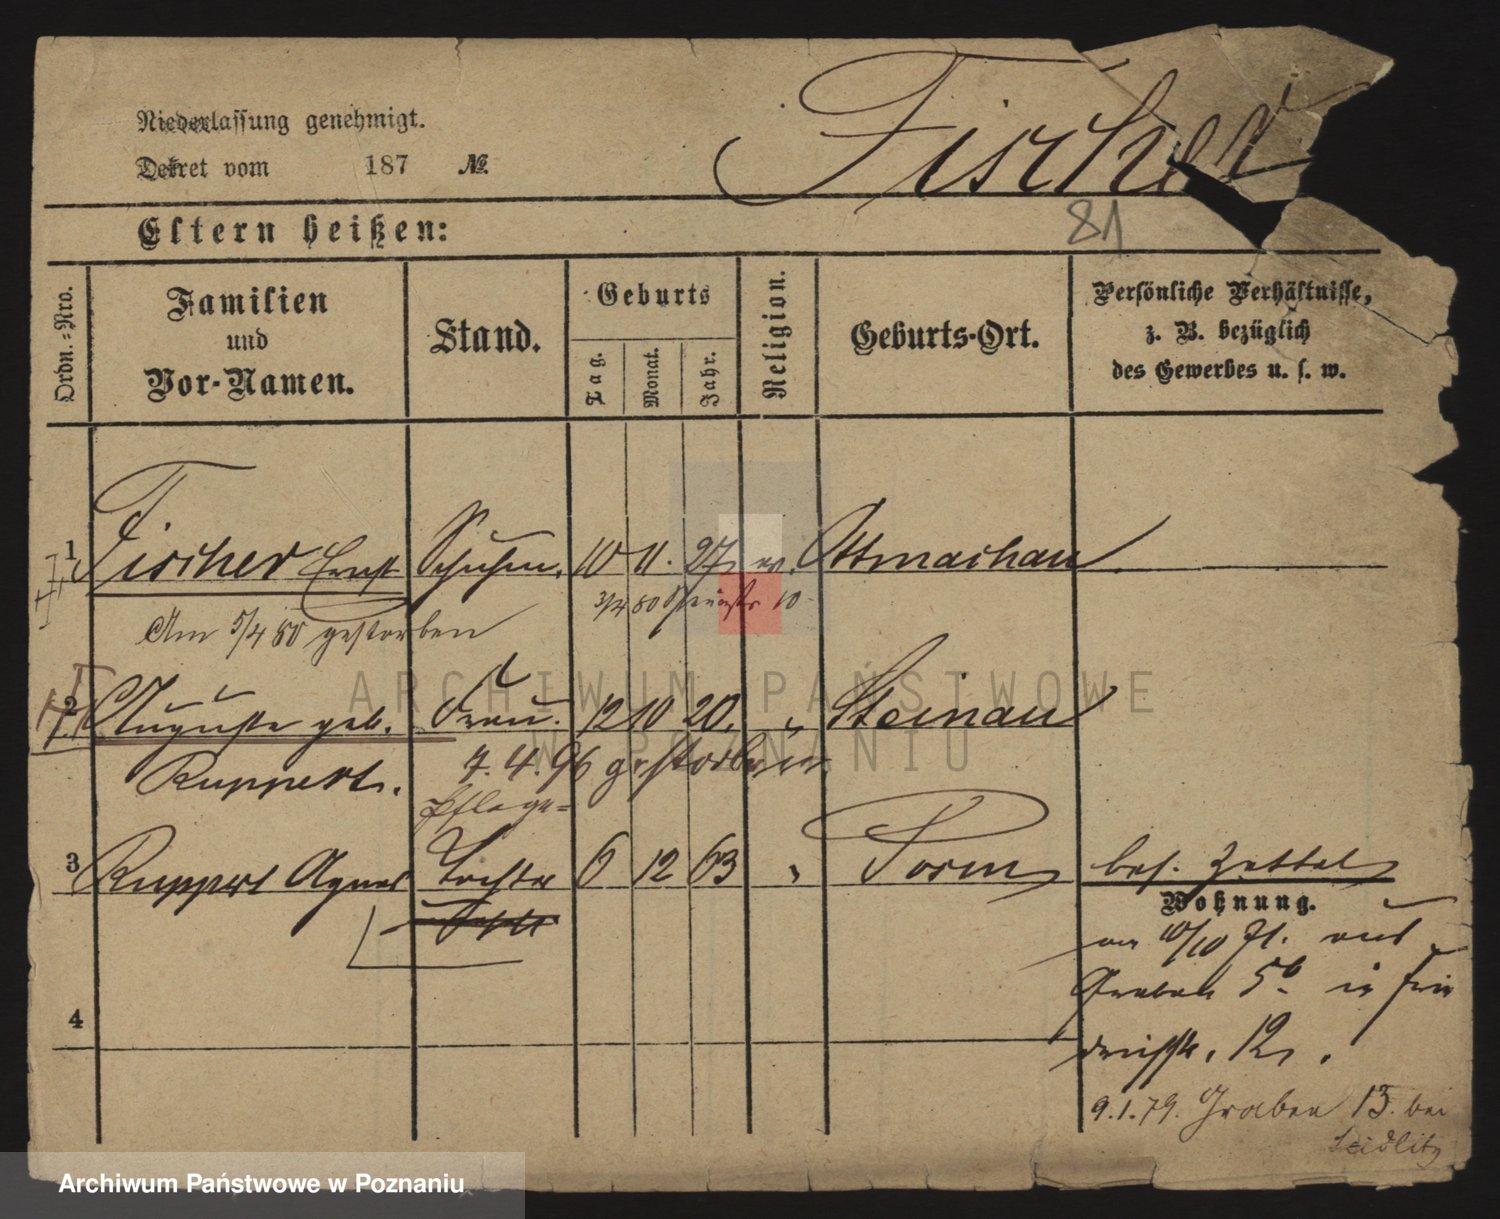 Fischer
Niederlassung genehmigt.
Dekret vom 187 №.
81
Eltern heißen:
Ordn.-Nro.
Familien und Vor-Namen.
Stand.
Geburts
Tag.
Monat.
Jahr.
Religion.
Geburts-Ort.
Persönliche Verhältnisse,
z. B. bezüglich
des Gewerbes u. s. w.
1 Fischer Ernst Schuhm. 10 11. 27. ev. Ottmachau
3/4 80 10
Am 5/4 80 gestorben
2 Auguste geb. Frau. 12 10 20. " Steinau
Ruppert. 7. 4. 96 gestorben
Pflege=
3 Ruppert Agnes Tochter 6 12 63 " Posen bes. Zettel
Wohnung.
10/10 aus
Graben 5b in Frie
drichstr. 12.
4
9.1.79. Graben 13. bei
Seidlitz
ARCHIWUM PAŃSTWOWE
W POZNANIU
Archiwum Państwowe w Poznaniu